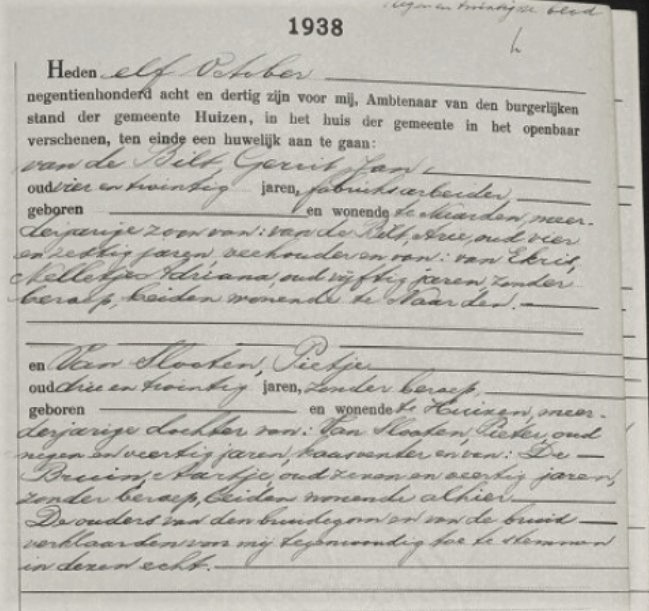 negen en twintigste blad
1938
h
Heden elf October
negentienhonderd acht en dertig zijn voor mij, Ambtenaar van den burgerlijken
stand der gemeente Huizen, in het huis der gemeente in het openbaar
verschenen, ten einde een huwelijk aan te gaan:
van de Bilt, Gerrit Jan,
oud vier en twintig jaren, fabrieksarbeider,
geboren en wonende te Naarden, meer-
derjarige zoon van: van de Bilt, Arie, oud vier
en zestig jaren, veehouder en van: van Ekris,
Nelletje Adriana, oud vijftig jaren, zonder
beroep, beiden wonende te Naarden.
en Van Slooten, Pietje
oud drie en twintig jaren, zonder beroep,
geboren en wonende te Huizen, meer-
derjarige dochter van: Van Slooten, Pieter, oud
negen en veertig jaren, kaasventer en van: De
Bruin, Aartje, oud zeven en veertig jaren,
zonder beroep, beiden wonende alhier.
De ouders van den bruidegom en van de bruid
verklaarden voor mij tegenwoordig toe te stemmen
in dezen echt.